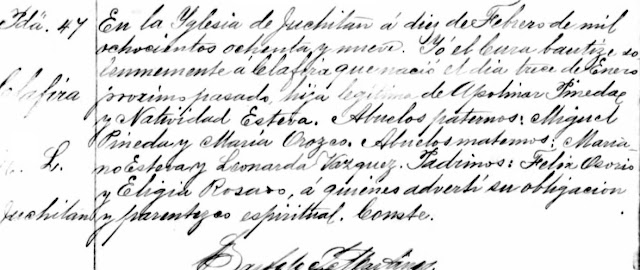 Pda. 47 En la Yglesia de Juchitan á diez de Febrero de mil
ochocientos ochenta y nueve. Yó el Cura bautizé so
lemnemente á Clafira que nació el dia trece de Enero
Clafira proximo pasado, hija legitima de Apolinar Pineda
y Natividad Esteva. Abuelos paternos: Miguel
Pineda y María Orozco. Abuelos maternos: Maria
L. no Esteva y Leonarda Vazquez. Padrinos: Felix Osorio
y Eligia Rosado, a quienes advertí su obligacion
Juchitan y parentezco espiritual. Conste.